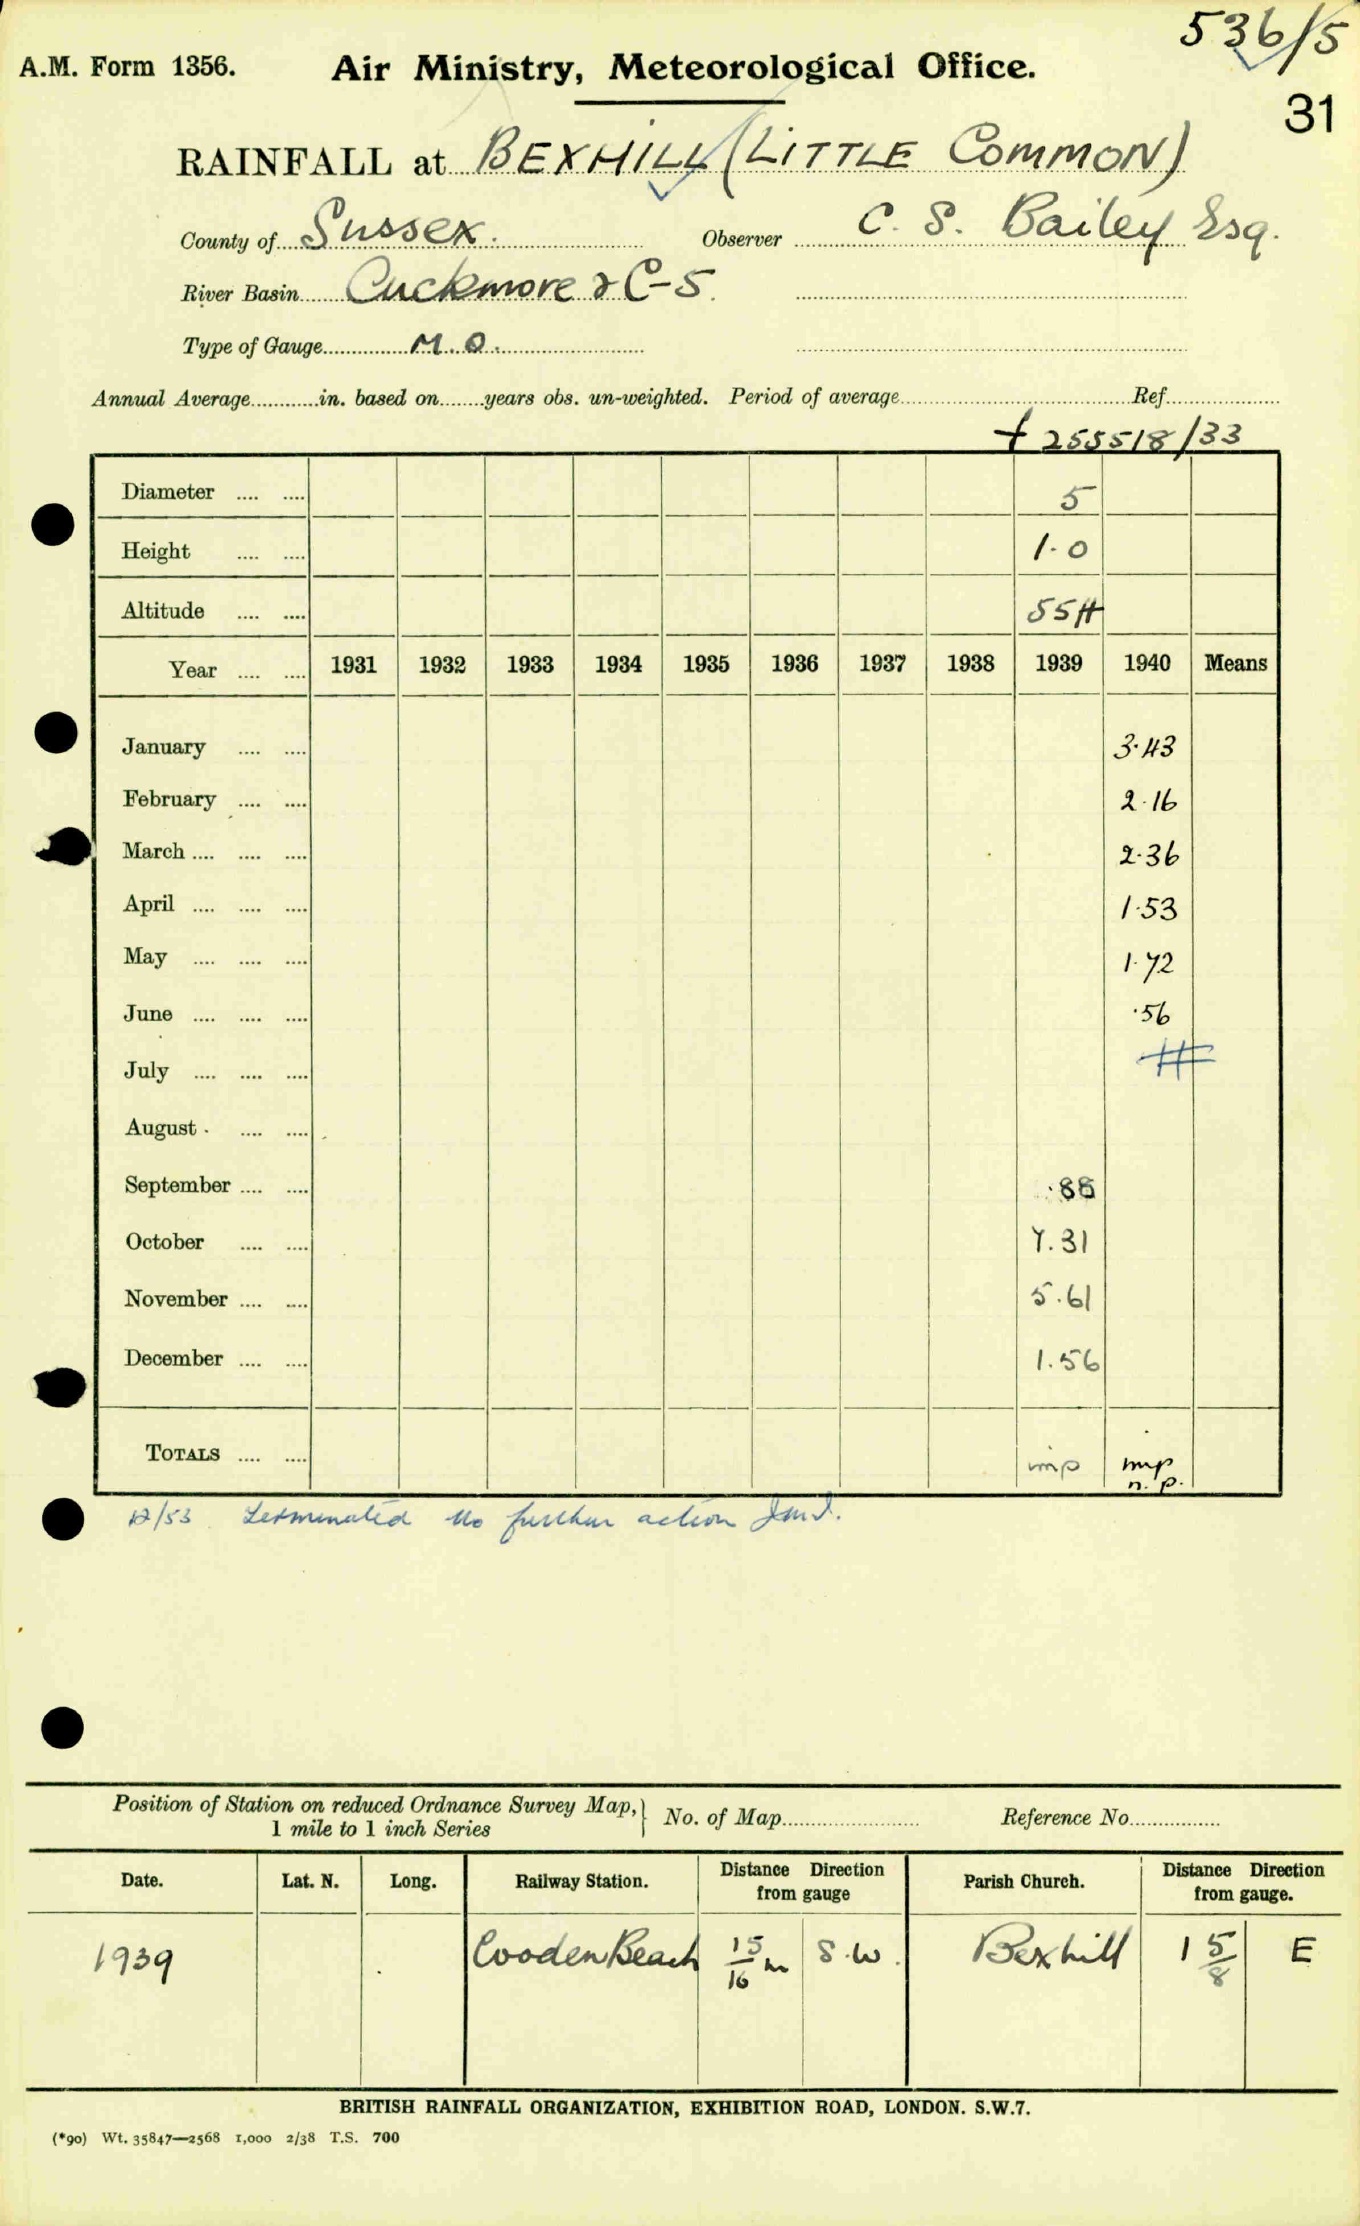 536/5
A.M. Form 1356. Air Ministry, Meteorological Office.
31
RAINFALL at BEXHILL (LITTLE COMMON)
County of Sussex. Observer C. S. Bailey Esq.
River Basin Cuckmore & C-5.
Type of Gauge M.O.
Annual Average............in. based on.......years obs. un-weighted. Period of average.......... Ref..........
255518/33
Diameter .... .... 5
Height .... .... 1.0
Altitude .... .... 55ft
Year .... .... 1931 1932 1933 1934 1935 1936 1937 1938 1939 1940 Means
January .... .... 3.43
February .... .... 2.16
March .... .... .... 2.36
April .... .... .... 1.53
May .... .... .... 1.72
June .... .... .... .56
July .... .... ....
August .... ....
September .... .... .88
October .... .... 7.31
November .... .... 5.61
December .... .... 1.56
TOTALS .... .... imp imp
n.p.
12/53 Terminated No further action
Position of Station on reduced Ordnance Survey Map, No. of Map.......... Reference No..........
1 mile to 1 inch Series
Date. Lat. N. Long. Railway Station. Distance Direction from gauge Parish Church. Distance Direction from gauge.
1939 Cooden Beach 15/16 m S.W. Bexhill 1 5/8 E
BRITISH RAINFALL ORGANIZATION, EXHIBITION ROAD, LONDON. S.W.7.
(*90) Wt. 35847—2568 1,000 2/38 T.S. 700